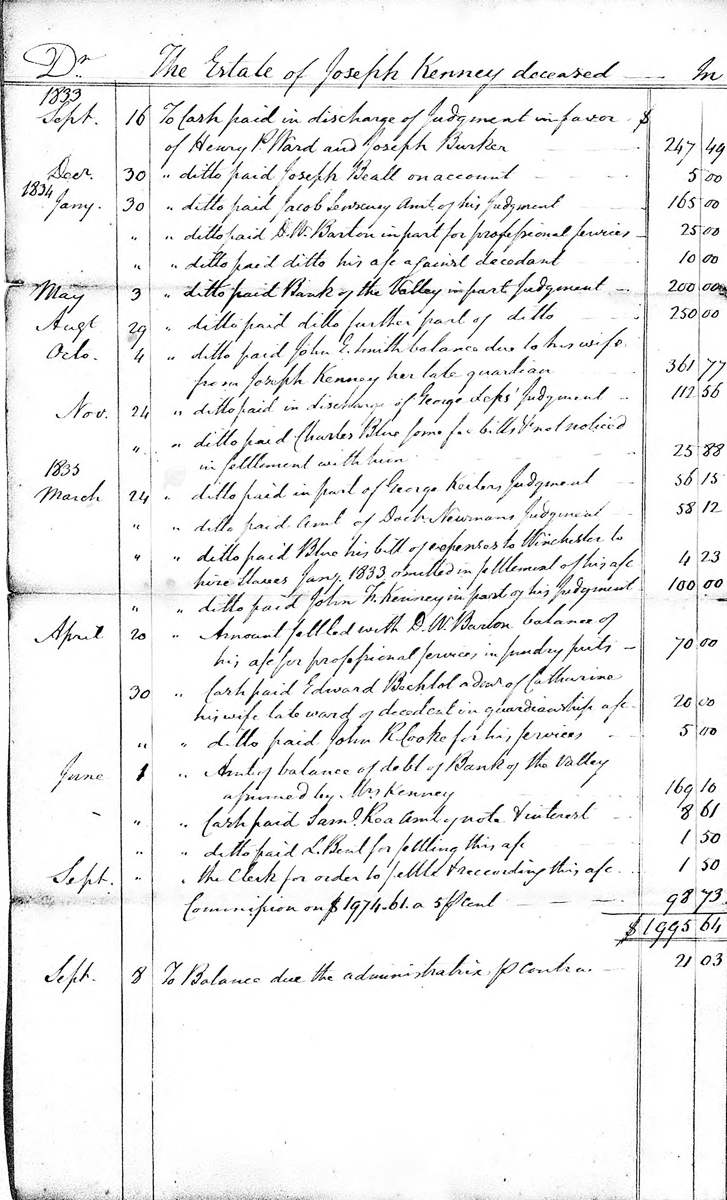 Dr The Estate of Joseph Kenney deceased — In
1833
Sept. 16 To Cash paid in discharge of Judgment in favor $
of Henry P. Ward and Joseph Burker 247 49
Decr. 30 " ditto paid Joseph Beall on account 5 00
1834
Jany. 30 " ditto paid Jacob Amt. of his Judgment 165 00
" " ditto paid D. W. Barton in part for professional services 25 00
" " ditto paid ditto his a/c against decedant 10 00
May 3 " ditto paid Bank of the Valley in part Judgment 200 00
Augt 29 " ditto paid ditto further part of ditto 250 00
Octo. 4 " ditto paid John E. Smith balance due to his wife
from Joseph Kenney her late guardian 361 77
Nov. 24 " ditto paid in discharge of George Leps' Judgment 112 56
" " ditto paid Charles Blue some fee bills & not noticed
in settlement with him 25 88
1835
March 24 " ditto paid in part of George Keilers Judgment 56 15
" " ditto paid Amt. of Doctr. Newmans Judgment 58 12
" " ditto paid Blue his bill of expenses to Winchester to
hire slaves Jany. 1833 omitted in settlement of his a/c 4 23
" " ditto paid John F. Kenney in part of his Judgment 100 00
April 20 " Amount settled with D. W. Barton balance of
his a/c for professional services in sundry suits 70 00
30 " Cash paid Edward Bechtol admr of Catharine
his wife late ward of decedent in guardianship a/c 20 00
" " ditto paid John R. Cooke for his services 5 00
June 1 " Amt of balance of debt of Bank of the Valley
assumed by Mrs Kenney 169 10
" " Cash paid Saml. Rea amt of note & interest 8 61
" " ditto paid L. Bent for settling this a/c 1 50
Sept. " " the Clerk for order to settle & reccording this a/c 1 50
Commission on $1974.61. a 5 p cent 98 73
$1995 64
Sept. 8 To Balance due the administratrix p contra 21 03